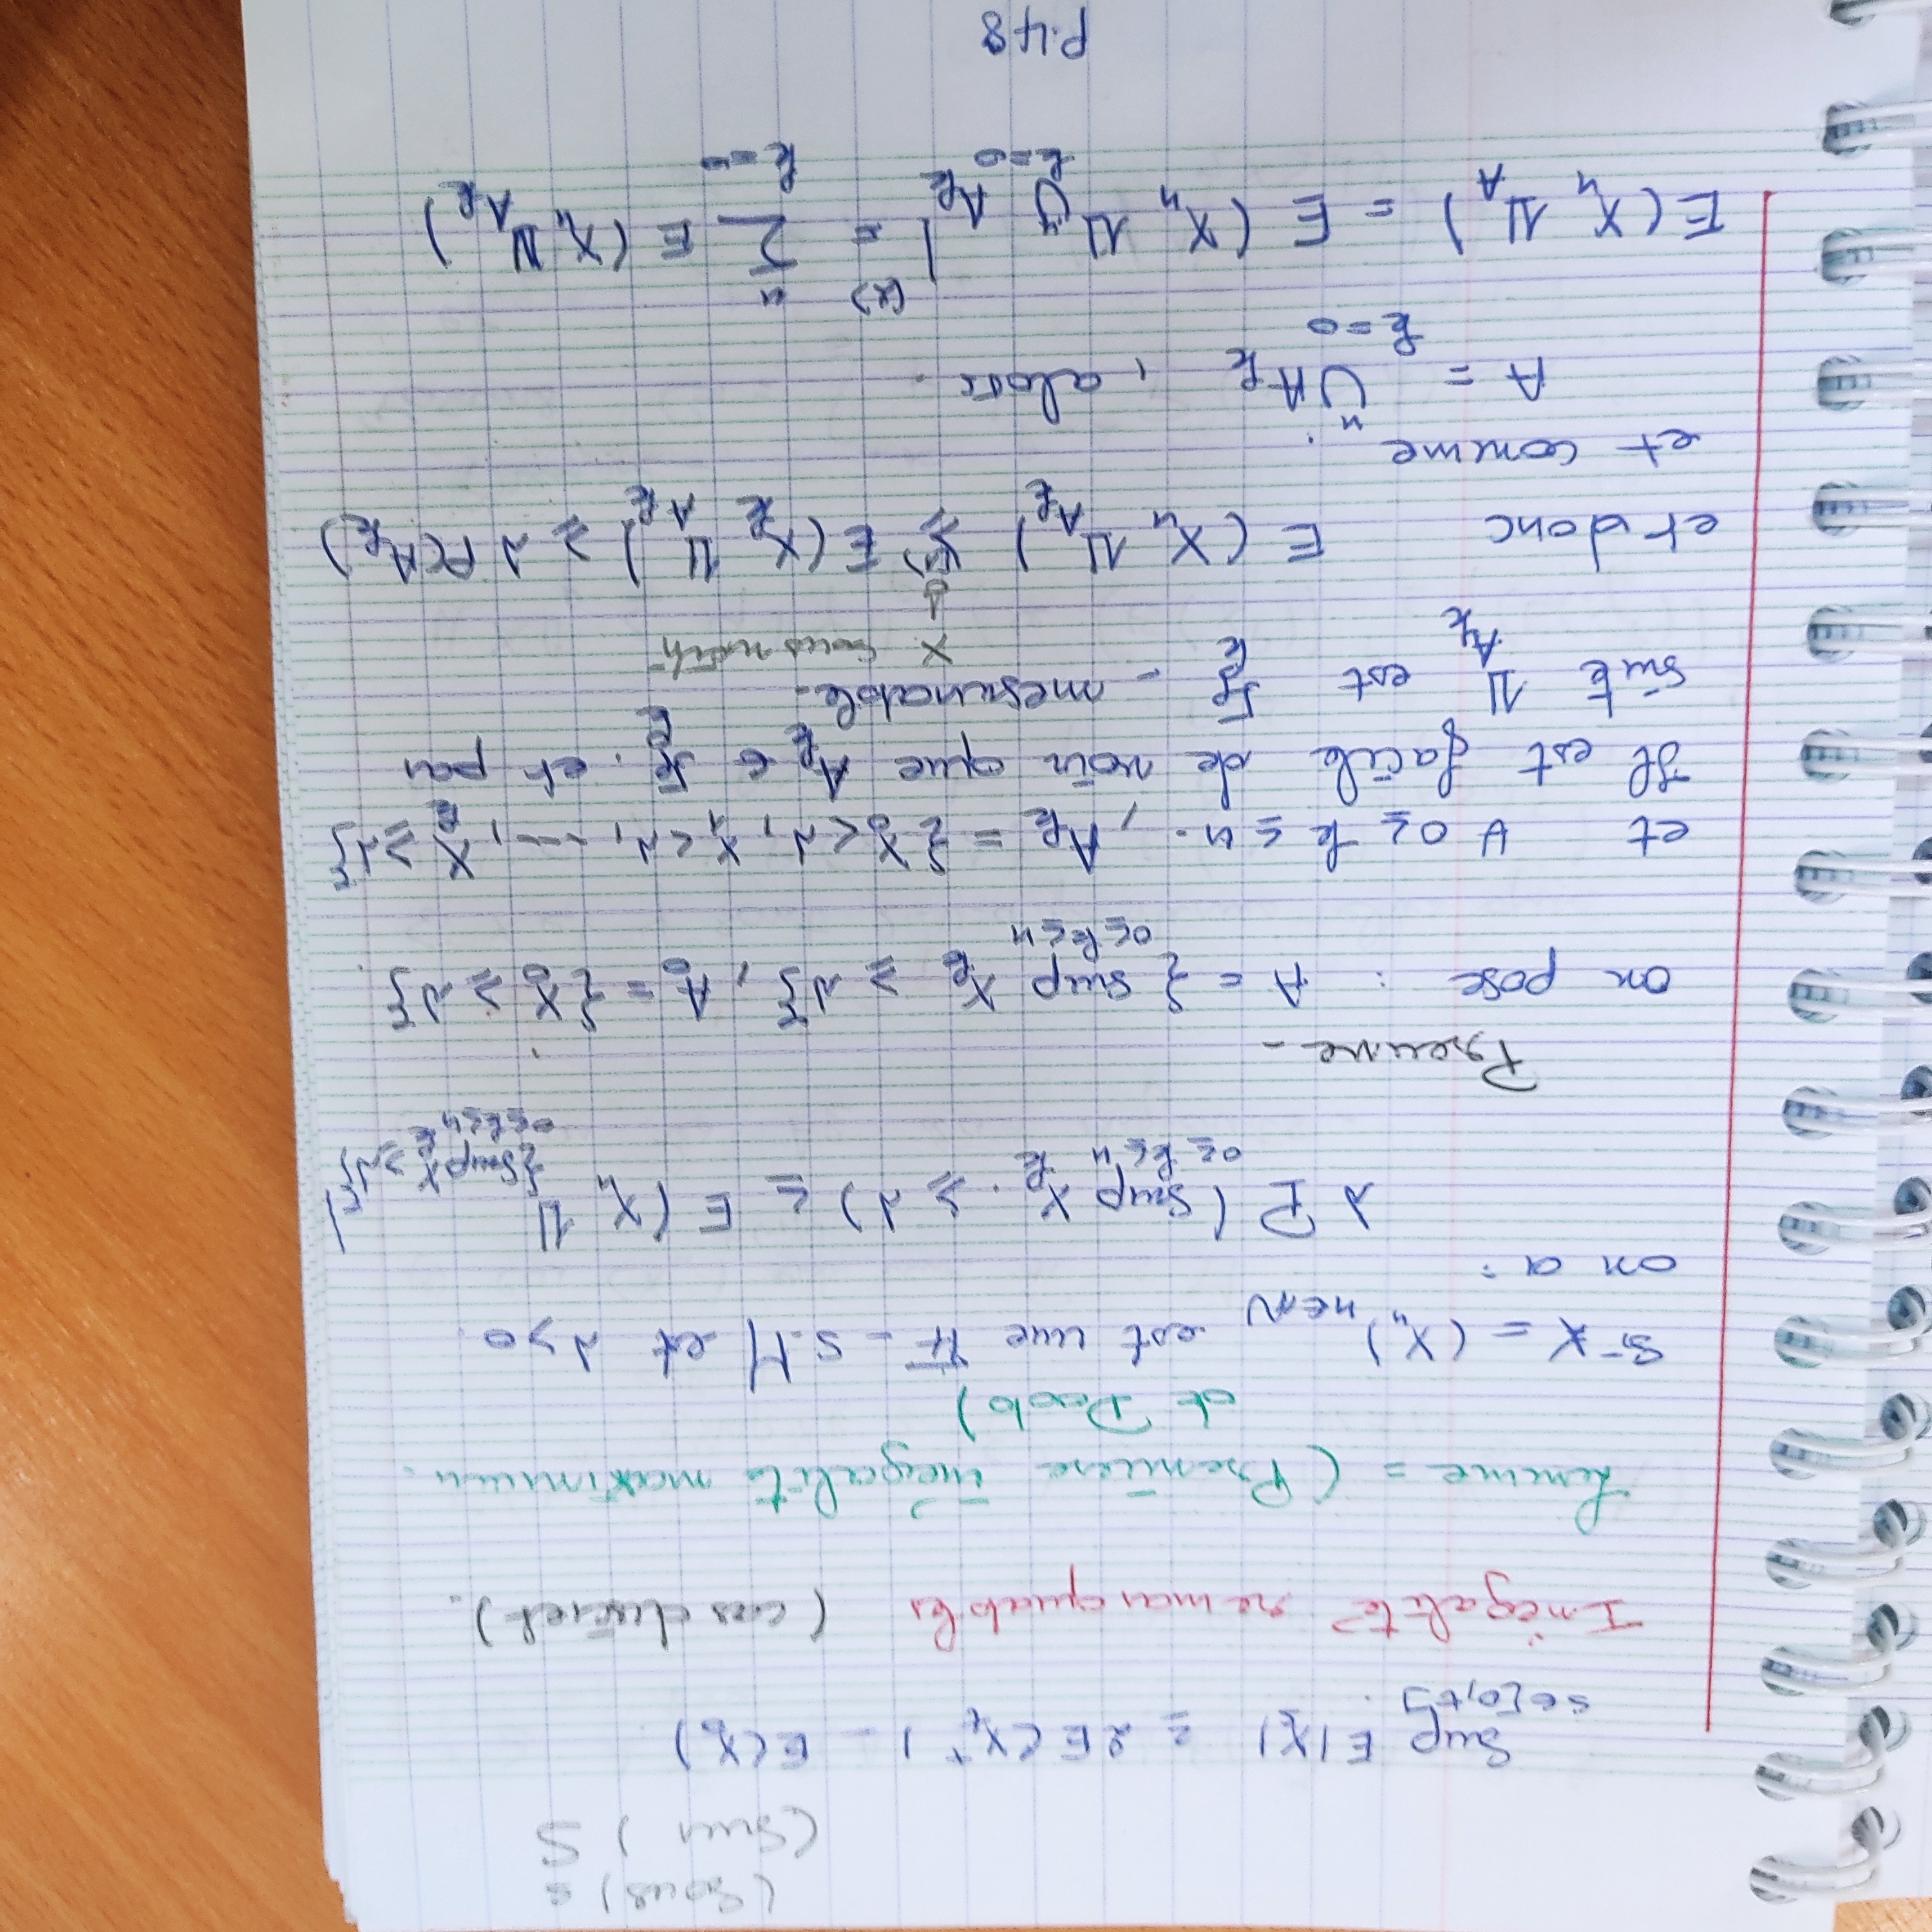 (Sous) s
(Sur) S
Sup E|X_s| ≤ 2E(X_t^+) - E(X_0)
s∈[0,t].
Inégalité remarquables (cas discret).
Lemme = (Première inégalité maximum.
de Doob)
Si X = (X_n)_{n∈ℕ} est une 𝔽 - s.M et λ > 0.
on a :
λ P (sup_{0≤k≤n} X_k ≥ λ) ≤ E (X_n 𝟙_{{sup_{0≤k≤n} X_k ≥ λ}})
Preuve -
on pose : A = { sup_{0≤k≤n} X_k ≥ λ}, A_0 = {X_0 ≥ λ}.
et ∀ 0 ≤ k ≤ n. , A_k = {X_0 < λ, X_1 < λ, ..., X_k ≥ λ}
Il est facile de voir que A_k ∈ ℱ_k. et par
suite 𝟙_{A_k} est ℱ_k - mesurable.
X sous mart
et donc E (X_n 𝟙_{A_k}) ≥ E (X_k 𝟙_{A_k}) ≥ λ P(A_k)
et comme .
A = ⋃_{k=0}^{n} A_k , alors.
E(X_n 𝟙_A) = E (X_n 𝟙_{⋃_{k=0} A_k}) =^{(2)} Σ_{k=0}^{n} E (X_n 𝟙_{A_k})
P.48